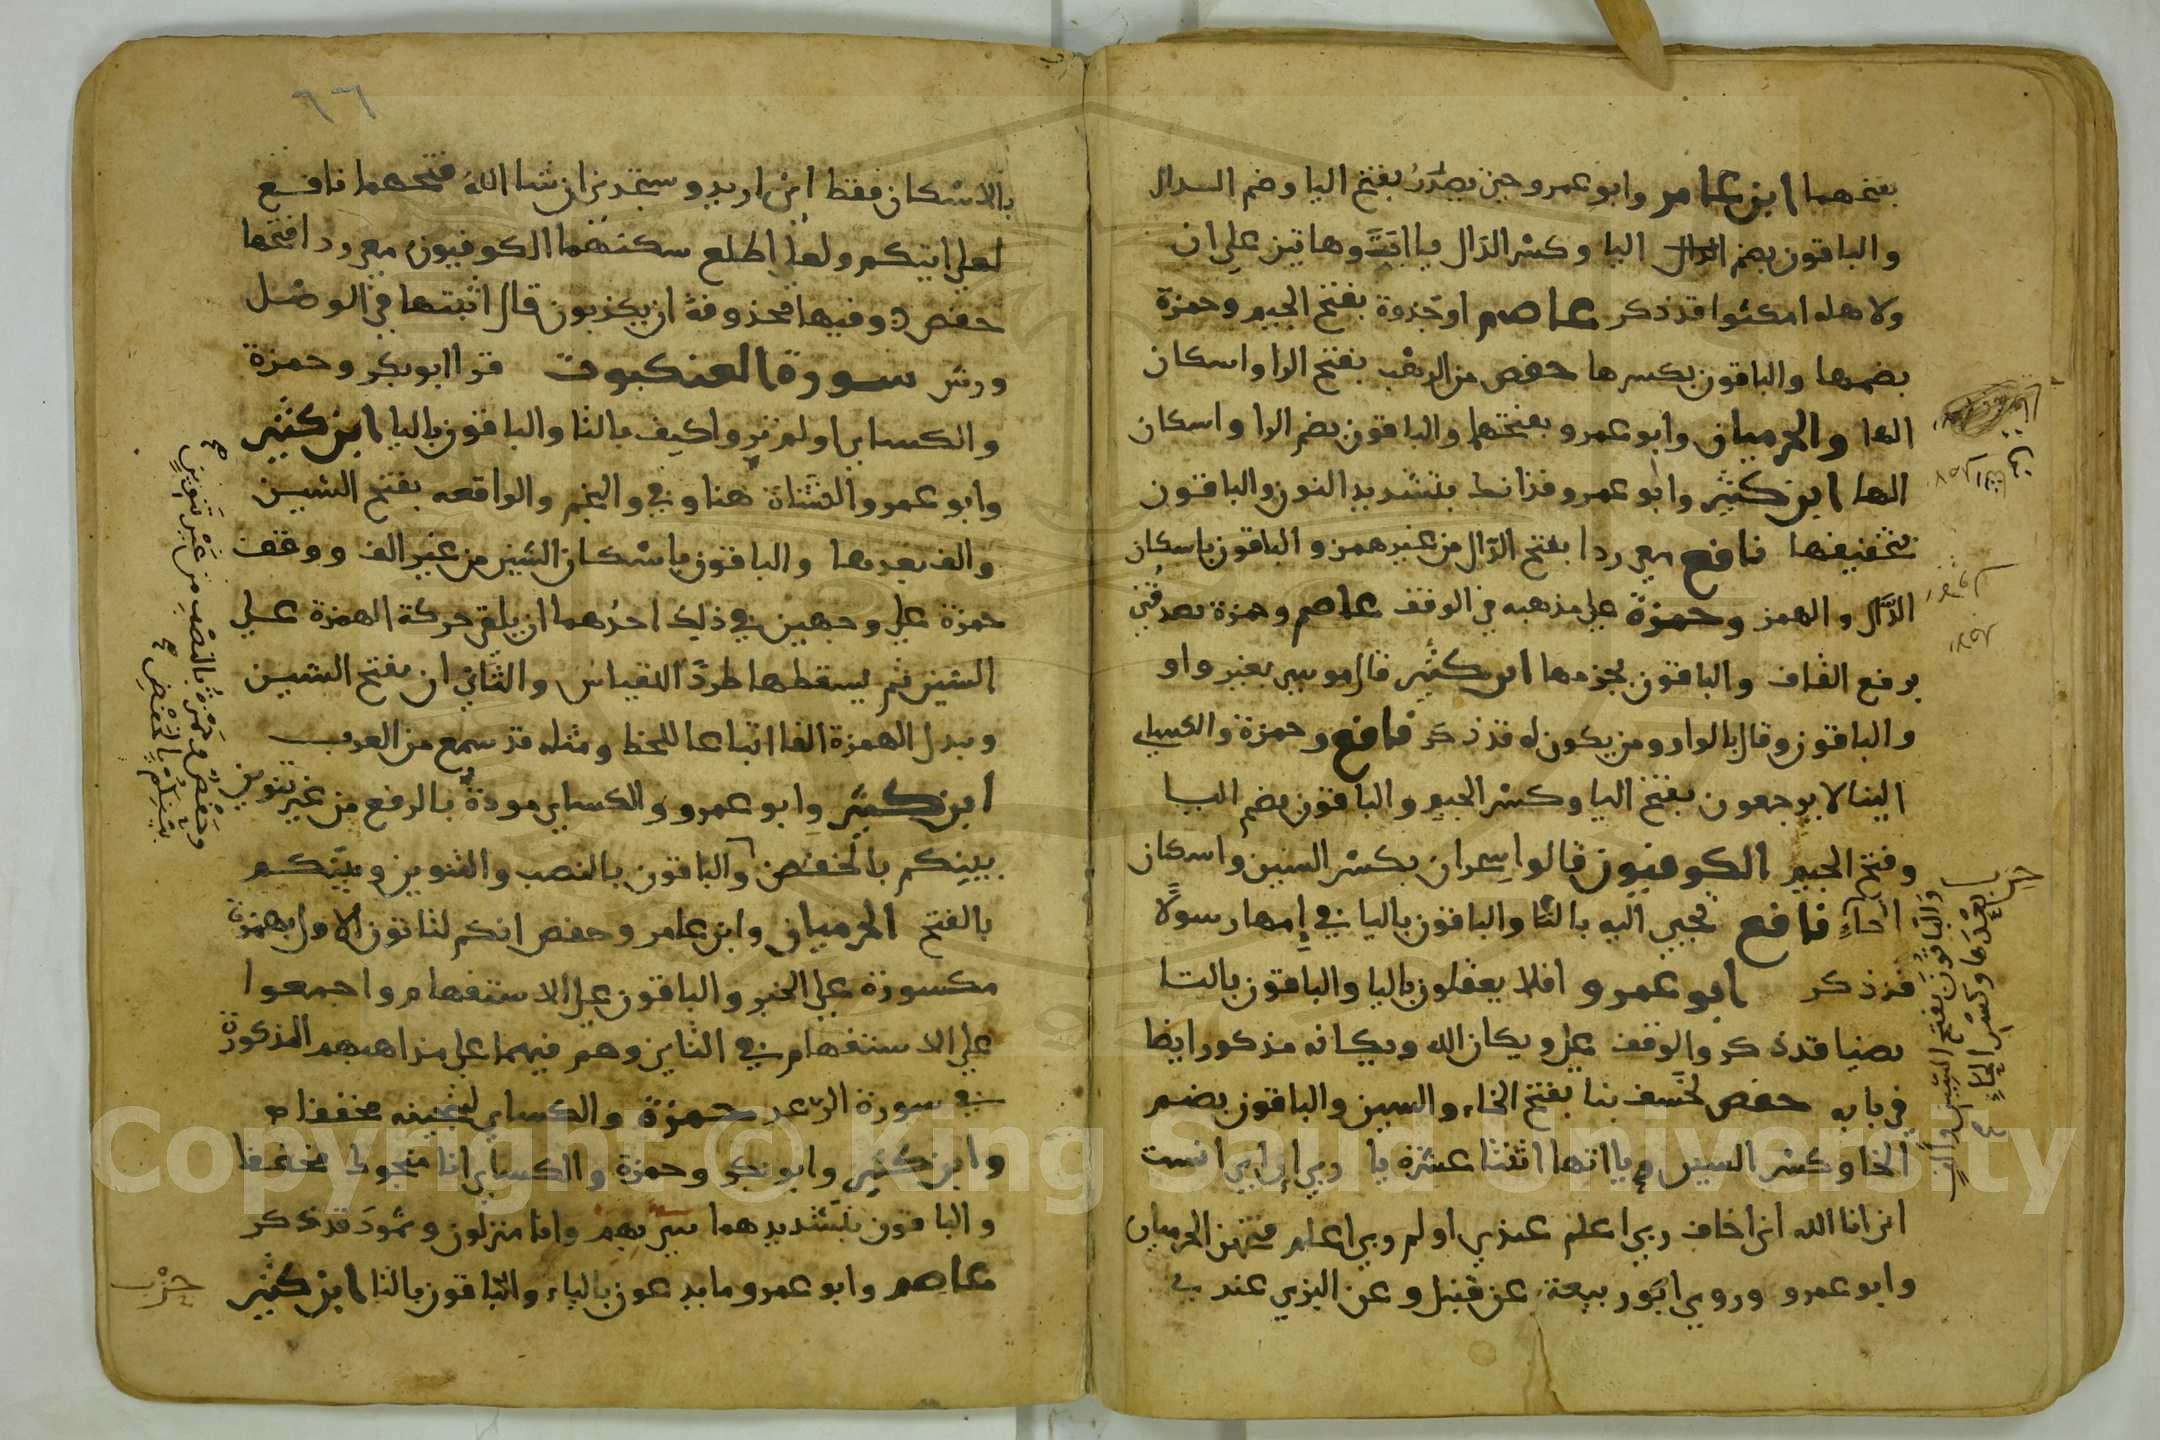 بفتحهما ابن عامر وابو عمرو حين يصدر بفتح اليا وضم الدال
والباقون بضم اليا وكسر الدال يا ابت وهاتين على ان
ولاهله امكثوا قد ذكر عاصم او جذوة بفتح الجيم وحمزة
بضمها والباقون بكسرها حفص من الرهب بفتح الرا واسكان
الها والحرميان وابو عمرو بفتحهما والباقون بضم الرا واسكان
الها ابن كثير وابو عمرو فذانك بتشديد النون والباقون
بتخفيفها نافع معي ردا بفتح الدال من غير همز والباقون باسكان
الدال والهمز وحمزة على مذهبه في الوقف عاصم وحمزة يصدقني
برفع القاف والباقون بجزمها ابن كثير قال موسى بغير واو
والباقون وقال بالواو ومن يكون له قد ذكر نافع وحمزة والكسايي
الينا لا يرجعون بفتح اليا وكسر الجيم والباقون بضم اليا
وفتح الجيم الكوفيون قالوا سحران بكسر السين واسكان
الحاء نافع تجبى اليه بالتا والباقون باليا في امها رسولا
قد ذكر ابو عمرو افلا يعقلون باليا والباقون بالتا
بضيا قد ذكر والوقف على ويكان الله ويكانه مذكور ايضا
في بابه حفص لخسف بنا بفتح الخاء والسين والباقون بضم
الخا وكسر السين يااتها اثنتا عشرة يا ربي ان اني انست
اني انا الله اني اخاف ربي اعلم عندي اولم ربي اعلم فتحهن الحرميان
وابو عمرو وروى ابو ربيعة عن قنبل وعن البزي عندي
والباقون بفتح السين والف
بعدها وكسر الحاء
حزب
٩٦
بالاسكان فقط اني اريد وستجدني ان شا الله فتحهما نافع
لعلي اتيكم ولعلي اطلع سكنهما الكوفيون معي ردا فتحها
حفص وفيها محذوفة ان يكذبون قال اثبتها في الوصل
ورش سورة العنكبوت قرا ابو بكر وحمزة
والكسايي اولم تروا كيف بالتا والباقون باليا ابن كثير
وابو عمرو النشاة هنا وفي والنجم والواقعه بفتح الشين
والف بعدها والباقون باسكان الشين من غير الف ووقف
حمزة على وجهين في ذلك احدهما ان يلقي حركة الهمزة على
الشين ثم يسقطها طردا للقياس والثاني ان يفتح الشين
ويبدل الهمزة الفا اتباعا للخط ومثله قد سمع من العرب
ابن كثير وابو عمرو والكسايي مودة بالرفع من غير تنوين
بينكم بالخفض والباقون بالنصب والتنوين وبينكم
بالفتح الحرميان وابن عامر وحفص انكم لتاتون الاول بهمزة
مكسورة على الخبر والباقون على الاستفهام واجمعوا
على الاستفهام في الثاني وهم فيهما على مذاهبهم المذكورة
في سورة الرعد حمزة والكسايي لننجينه مخففا
وابن كثير وابو بكر وحمزة والكسايي انا منجوك مخففا
والباقون بتشديدهما سي بهم وانا منزلون وثمود قد ذكر
عاصم وابو عمرو ما يدعون بالياء والباقون بالتا ابن كثير
وحفص وحمزة بالنصب من غير تنوين
بينكم بالخفض
حزب
Copyright © King Saud University